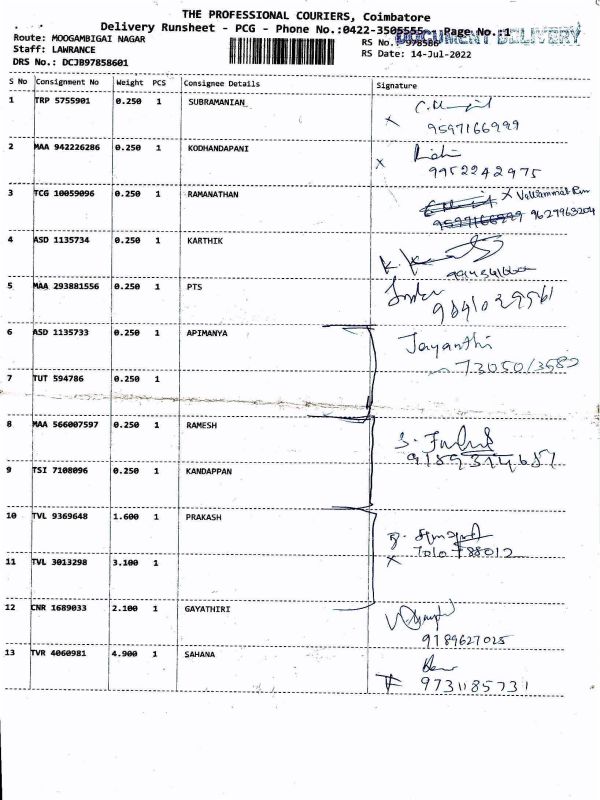 THE PROFESSIONAL COURIERS, Coimbatore
Delivery Runsheet - PCG - Phone No.:0422-3505555 Page No.:1
DOCUMENT DELIVERY
Route: MOOGAMBIGAI NAGAR
RS No.: 978586
Staff: LAWRANCE
RS Date: 14-Jul-2022
DRS No.: DCJB97858601
S No Consignment No Weight PCS Consignee Details Signature
1 TRP 5755901 0.250 1 SUBRAMANIAN
9597166999
2 MAA 942226286 0.250 1 KODHANDAPANI
X
9952242975
3 TCG 10059096 0.250 1 RAMANATHAN
X
9629963204
4 ASD 1135734 0.250 1 KARTHIK
5 MAA 293881556 0.250 1 PTS
9841029561
6 ASD 1135733 0.250 1 APIMANYA
Jayanthi
7305013580
7 TUT 594786 0.250 1
8 MAA 566007597 0.250 1 RAMESH
9 TSI 7108096 0.250 1 KANDAPPAN
10 TVL 9369648 1.600 1 PRAKASH
7010788012
X
11 TVL 3013298 3.100 1
12 CNR 1689033 2.100 1 GAYATHIRI
9189627025
13 TVR 4060981 4.900 1 SAHANA
9731185731